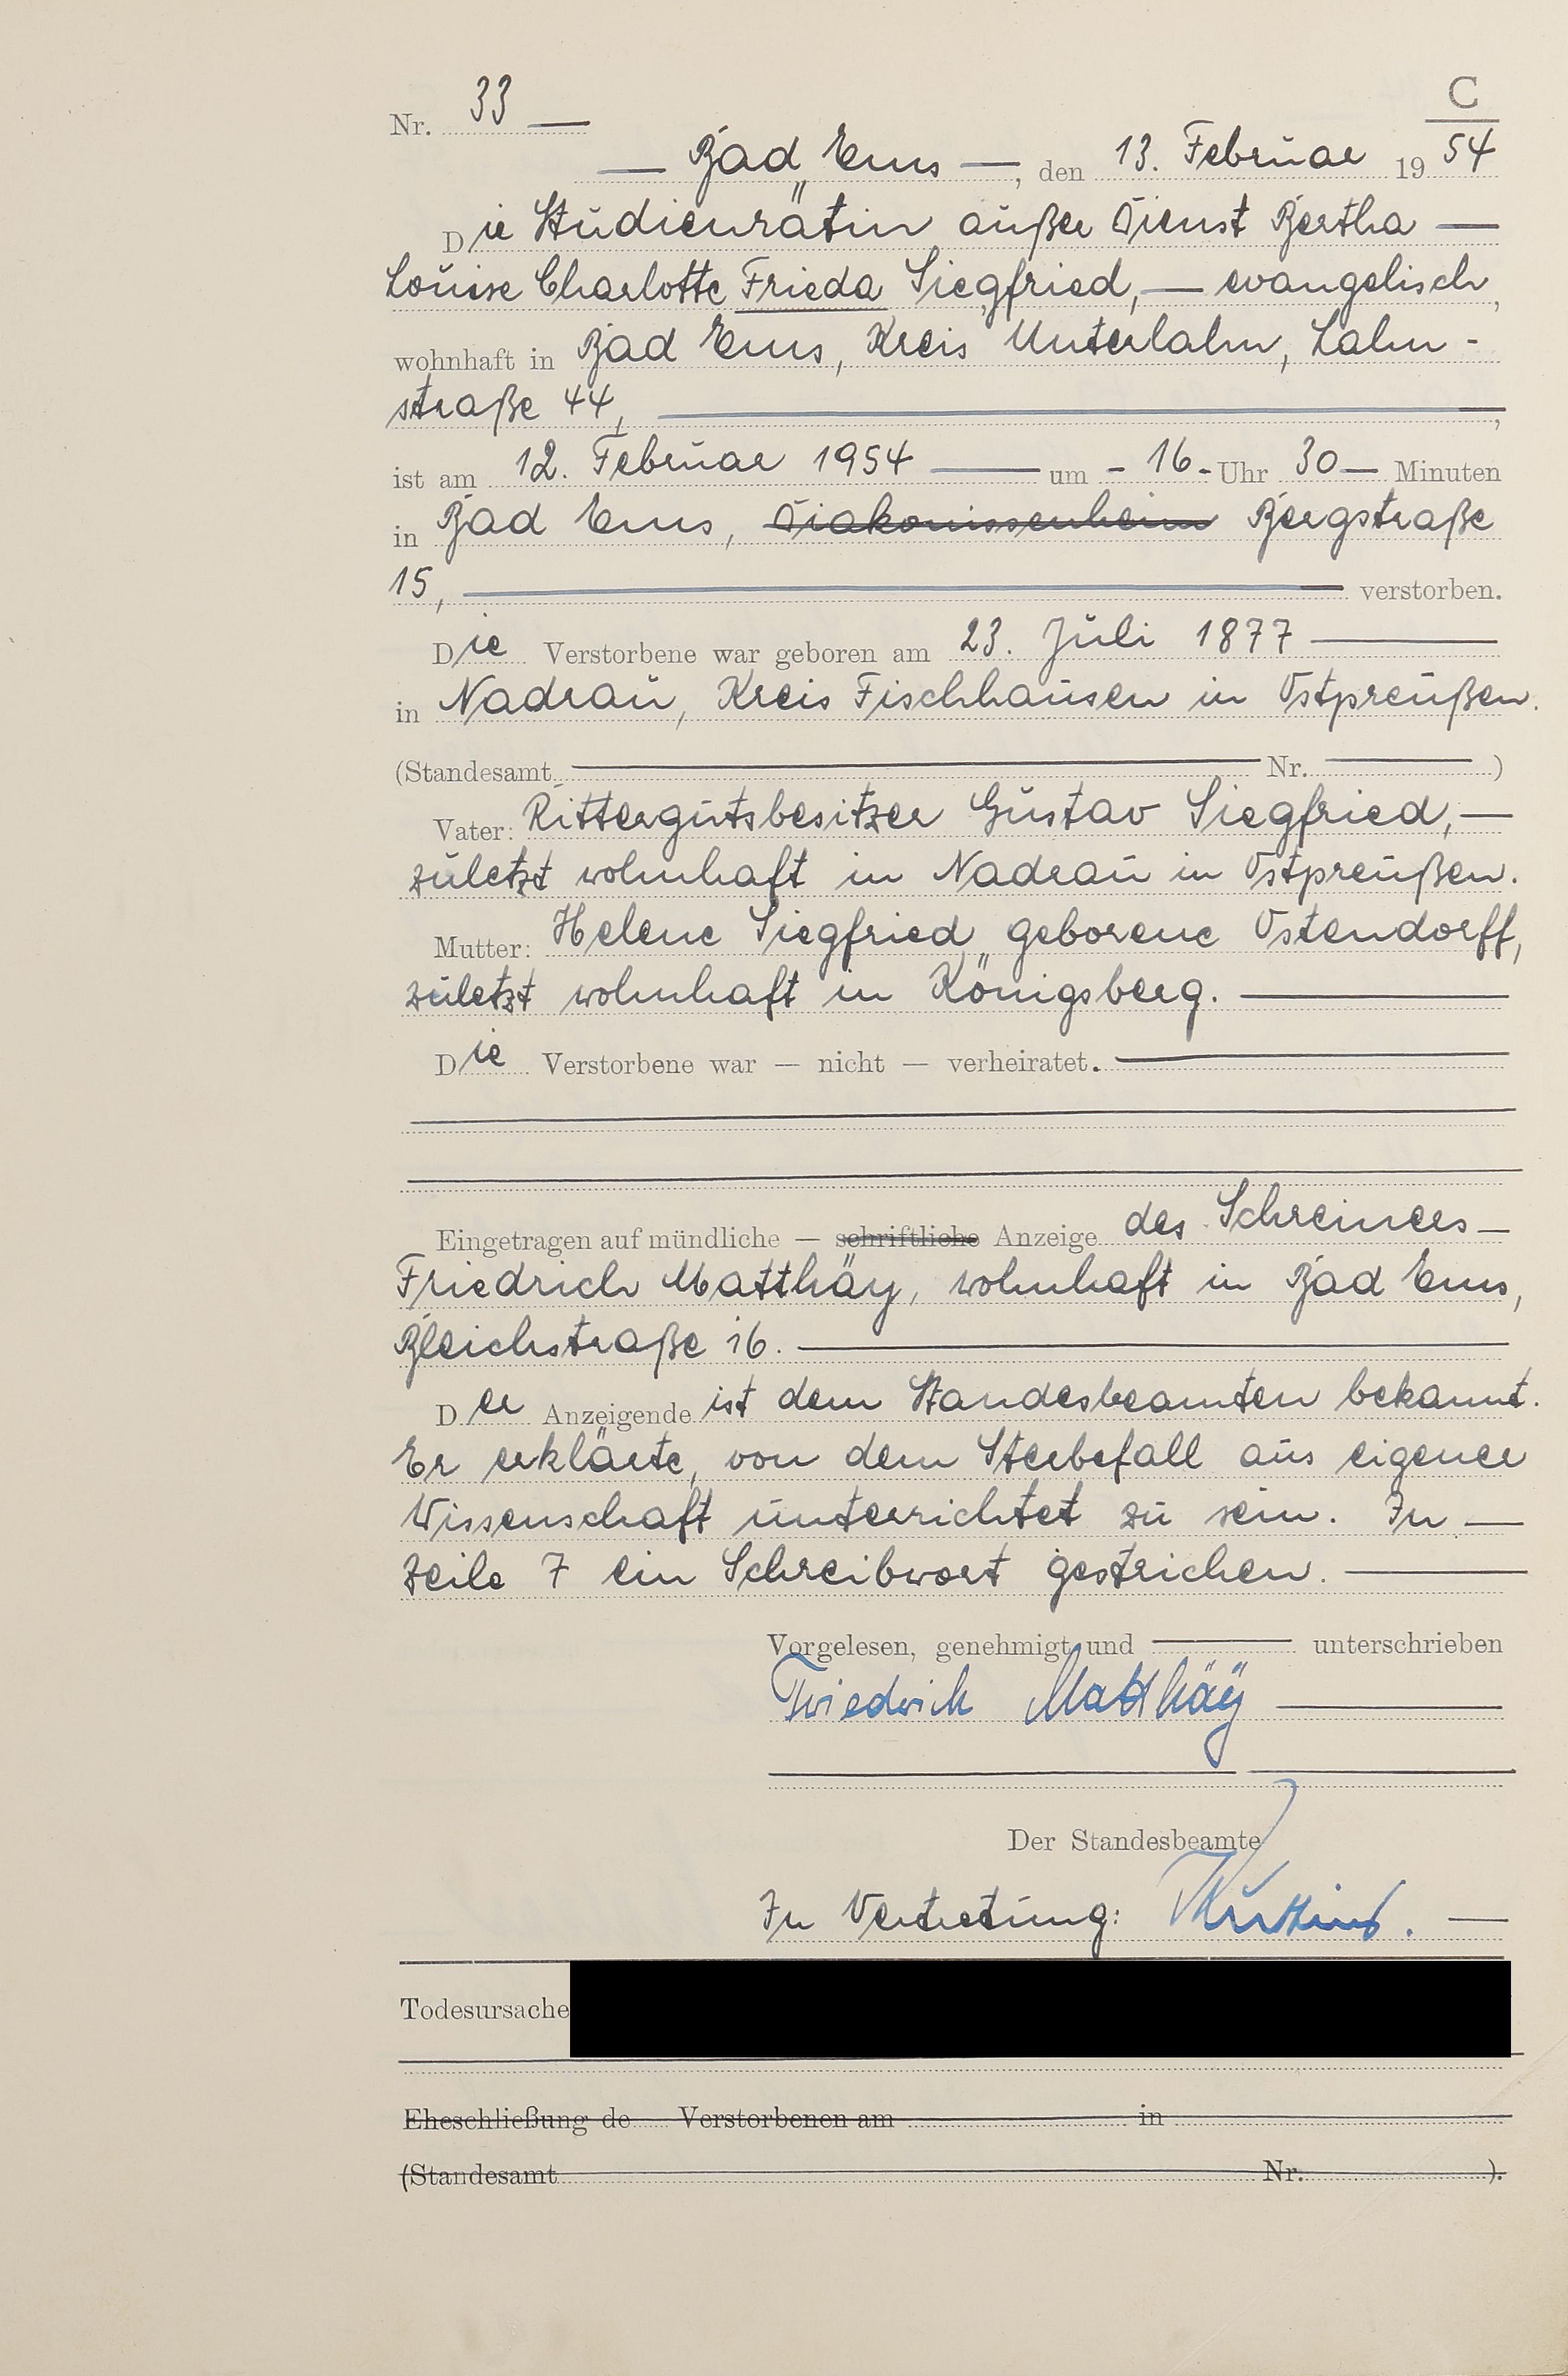 C
Nr. 33 —
— Bad Ems —, den 13. Februar 1954
Die Studienrätin außer Dienst Bertha —
Louise Charlotte Frieda Siegfried, — evangelisch,
wohnhaft in Bad Ems, Kreis Unterlahn, Lahn-
straße 44, —,
ist am 12. Februar 1954 — um - 16 - Uhr 30 — Minuten
in Bad Ems, Diakonissenheim Bergstraße
15, — verstorben.
Die Verstorbene war geboren am 23. Juli 1877 —
in Nadrau, Kreis Fischhausen in Ostpreußen.
(Standesamt — Nr. — )
Vater: Rittergutsbesitzer Gustav Siegfried, —
zuletzt wohnhaft in Nadrau in Ostpreußen.
Mutter: Helene Siegfried geborene Ostendorff,
zuletzt wohnhaft in Königsberg. —
Die Verstorbene war — nicht — verheiratet. —
Eingetragen auf mündliche — schriftliche Anzeige des Schreiners —
Friedrich Matthäy, wohnhaft in Bad Ems,
Bleichstraße 16. —
Der Anzeigende ist dem Standesbeamten bekannt.
Er erklärte, von dem Sterbefall aus eigener
Wissenschaft unterrichtet zu sein. In —
Zeile 7 ein Schreibwort gestrichen. —
Vorgelesen, genehmigt und — unterschrieben
Friedrich Matthäy —
Der Standesbeamte
In Vertretung: —
Todesursache
Eheschließung de Verstorbenen am — in
(Standesamt — Nr. ).